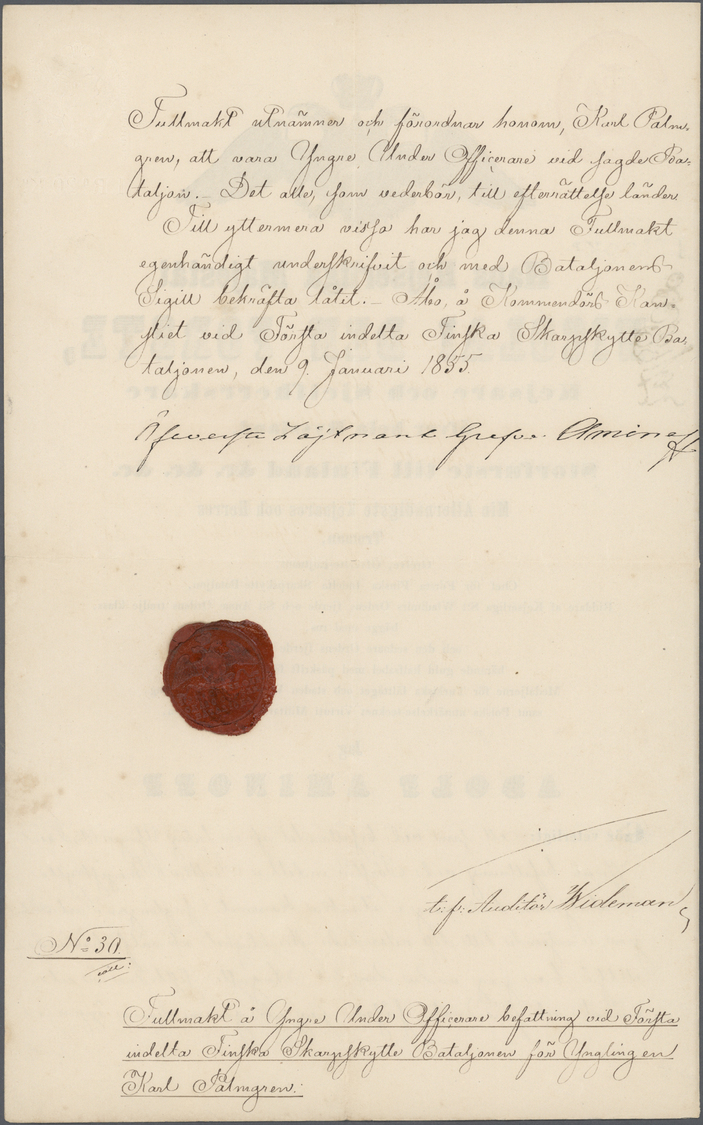 Fullmakt utnämner och förordnar honom, Karl Palm-
gren, att vara Yngre Under Officerare vid sagde Ba-
taljon. _ Det alle, som vederbör, till efterrättelse länder
Till yttermera visso har jag denna Fullmakt
egenhändigt underskrifvit och med Bataljonens
Sigill bekräfta låtit. _ Åbo, å Kommendörs Kan-
sliet vid Första indelta Finska Skarpskytte Ba-
taljonen, den 9. Januari 1855.
Öfverste Löjtnant Grefve Aminoff
t: f: Auditör Wideman
No 30.
Fullmakt å Yngre Under Officerare befattning vid Första
indelta Finska Skarpskytte Bataljonen för Ynglingen
Karl Palmgren: